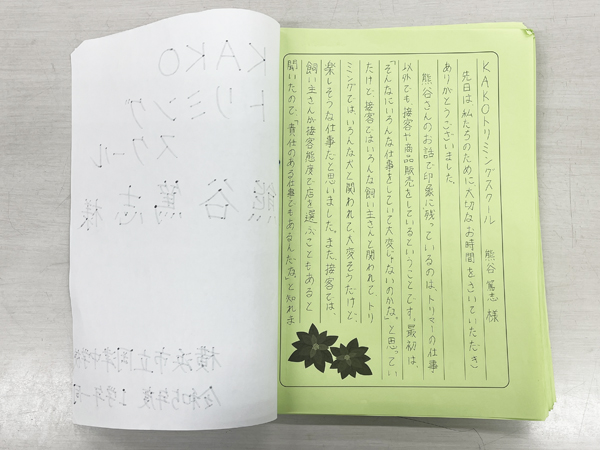 KAKOトリミングスクール　熊谷 篤志 様
先日は私たちのために大切なお時間をさいていただき
ありがとうございました。
熊谷さんのお話で印象に残っているのは、トリマーの仕事
以外でも、接客や商品販売をしているということです。最初は、
「そんなにいろんな仕事をしていて大変じゃないのかな」と思ってい
たけど、接客ではいろんな飼い主さんと関われて、トリ
ミングではいろんな犬と関われて、大変そうだけど
楽しそうな仕事だと思いました。また、接客では、
飼い主さんが接客態度で店を選ぶこともあると
聞いたので、「責任のある仕事でもあるんだな」と知れま
KAKO
トリミング
スクール
熊谷 篤志 様
横浜市立岡津中学
令和5年度 1学年一